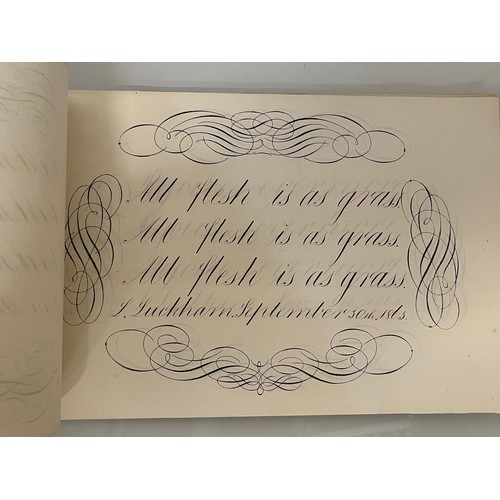 All flesh is as grass
All flesh is as grass.
All flesh is as grass.
September 30th, 18